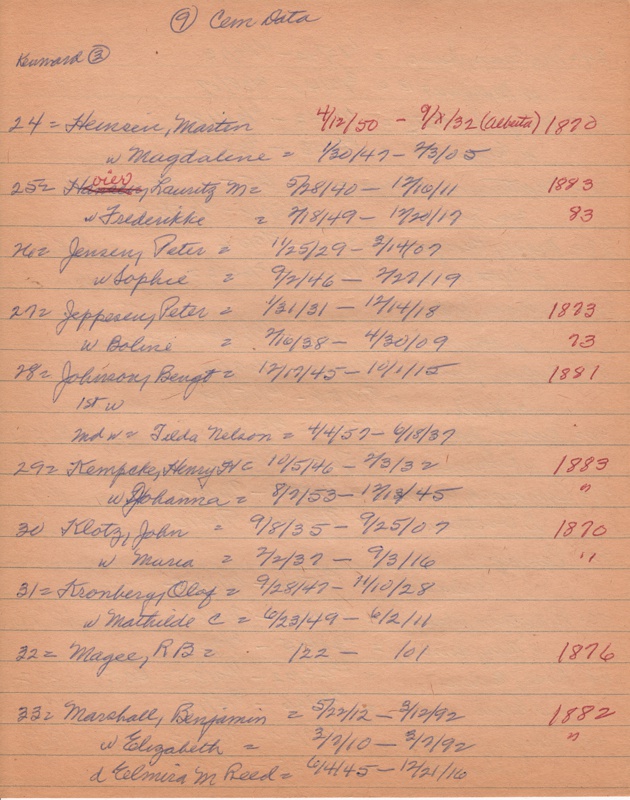 ⑨ Cem Data
Kennard ③
24 = Heinsen, Martin 4/12/50 - 9/X/32 (Alberta) 1870
w Magdaline = 1/30/47 - 2/3/05
25 = Hovier, Lauritz M = 5/28/40 - 12/16/11 1883
w Frederikke = 2/18/49 - 12/20/17 83
26 = Jensen, Peter = 11/25/29 - 3/14/07
w Sophie = 9/2/46 - 2/27/19
27 = Jeppesen, Peter = 1/31/31 - 12/14/18 1873
w Boline = 7/16/38 - 4/30/09 73
28 = Johnson, Bengt = 12/17/45 - 10/1/15 1881
1st w
md w = Tilda Nelson = 4/4/57 - 6/18/37
29 = Kempcke, Henry H C 10/5/46 - 2/3/32 1883
w Johanna = 8/2/53 - 12/13/45 "
30 Klotz, John = 9/8/35 - 9/25/07 1870
w Maria = 2/2/37 - 9/3/16 "
31 = Kronberg, Olof = 9/28/47 - 11/10/28
w Mathilde C = 6/23/49 - 6/2/11
32 = Magee, R B = /22 - /01 1876
33 = Marshall, Benjamin = 5/22/12 - 3/12/92 1882
w Elizabeth = 3/2/10 - 3/2/92 "
d Elmira M Reed = 6/4/45 - 12/21/16